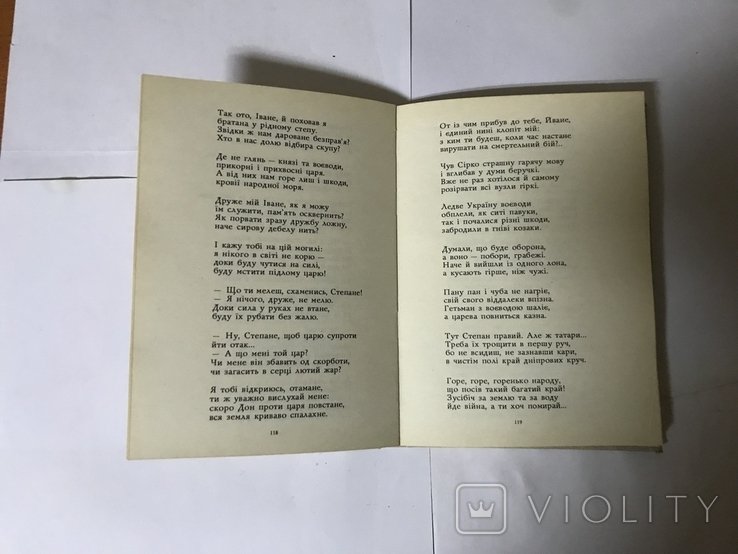 Так ото, Іване, й поховав я
братана у рідному степу.
Звідки ж нам дароване безправ'я?
Хто в нас долю відбира скупу?
Де не глянь — князі та воєводи,
прикорні і прихвосні царя.
А від них нам горе лиш і шкоди,
кровії народної моря.
Друже мій Іване, як я можу
їм служити, пам'ять осквернить?
Як порвати зразу дружбу ложну,
наче сирову дебелу нить?
І кажу тобі на цій могилі:
я нікого в світі не корю —
доки буду чутися на силі,
буду мстити підлому царю!
— Що ти мелеш, схаменись, Степане!
— Я нічого, друже, не мелю.
Доки сила у руках не втане,
буду їх рубати без жалю.
— Ну, Степане, щоб царю супроти
йти отак...
— А що мені той цар?
Чи мене він збавить од скорботи,
чи загасить в серці лютий жар?
Я тобі відкриюсь, отамане,
ти ж уважно вислухай мене:
скоро Дон проти царя повстане,
вся земля криваво спалахне.
118
От із чим прибув до тебе, Йване,
і єдиний нині клопіт мій:
з ким ти будеш, коли час настане
вирушати на смертельний бій?..
Чув Сірко страшну гарячу мову
і вглибав у думи беручкі.
Вже не раз хотілося й самому
розірвати всі вузли гіркі.
Ледве Україну воєводи
обплели, як ситі павуки,
так і почалися різні шкоди,
забродили в гніві козаки.
Думали, що буде оборона,
а воно — побори, грабежі.
Наче й вийшли із одного лона,
а кусають гірше, ніж чужі.
Пану пан і чуба не нагріє,
свій свого віддалеки впізна.
Гетьман з воєводою шаліє,
а царева повниться казна.
Тут Степан правий. Але ж татари...
Треба їх трощити в першу руч,
бо не всидиш, не зазнавши кари,
в чистім полі край дніпрових круч.
Горе, горе, горенько народу,
що посів такий багатий край!
Зусібіч за землю та за воду
йде війна, а ти хоч помирай...
119
VIOLITY